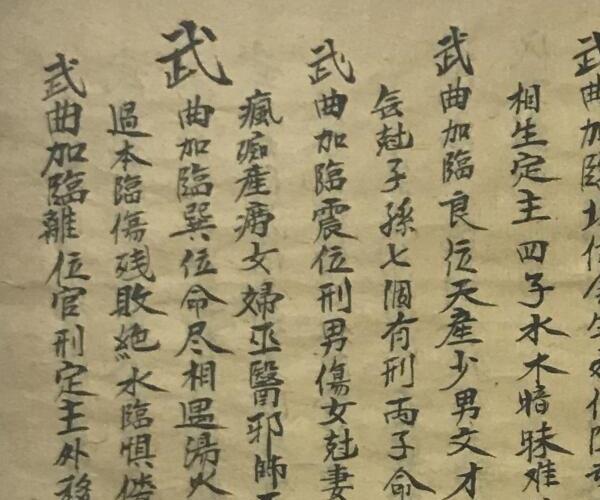 武曲加臨坎位金生
相生定主四子水木暗昧难
武曲加臨艮位天產少男文才
会尅子孫七個有刑両子命
武曲加臨震位刑男傷女尅妻
瘋痴產痨女婦巫醫邪師
武曲加臨巽位命尽相遇湯火
過本臨傷残敗絶水臨惧
武曲加臨離位官刑定主外移